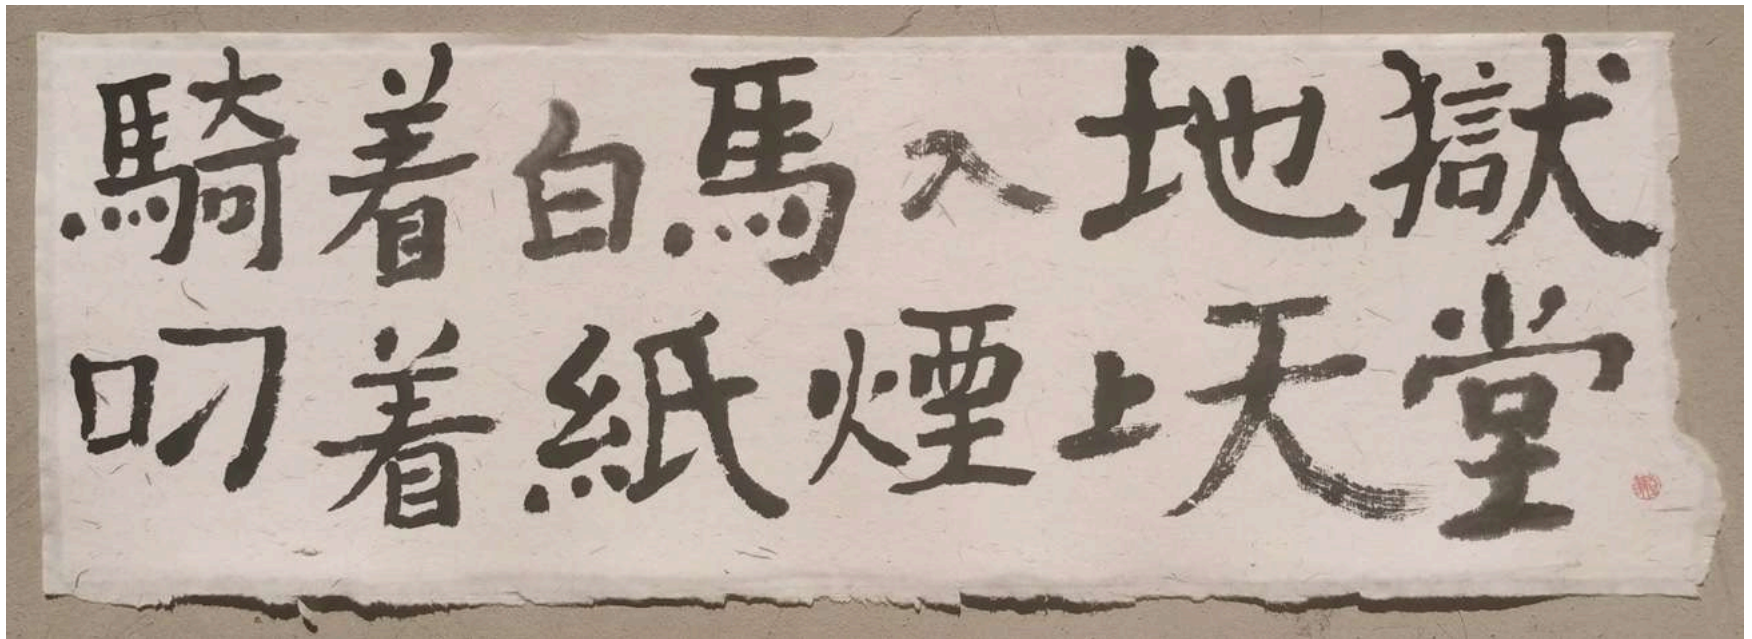 騎着白馬入地獄
叼着紙煙上天堂